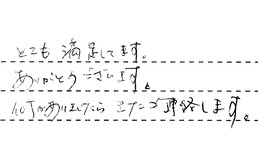 とても満足してます。
ありがとうございます。
何かありましたらまたご連絡します。